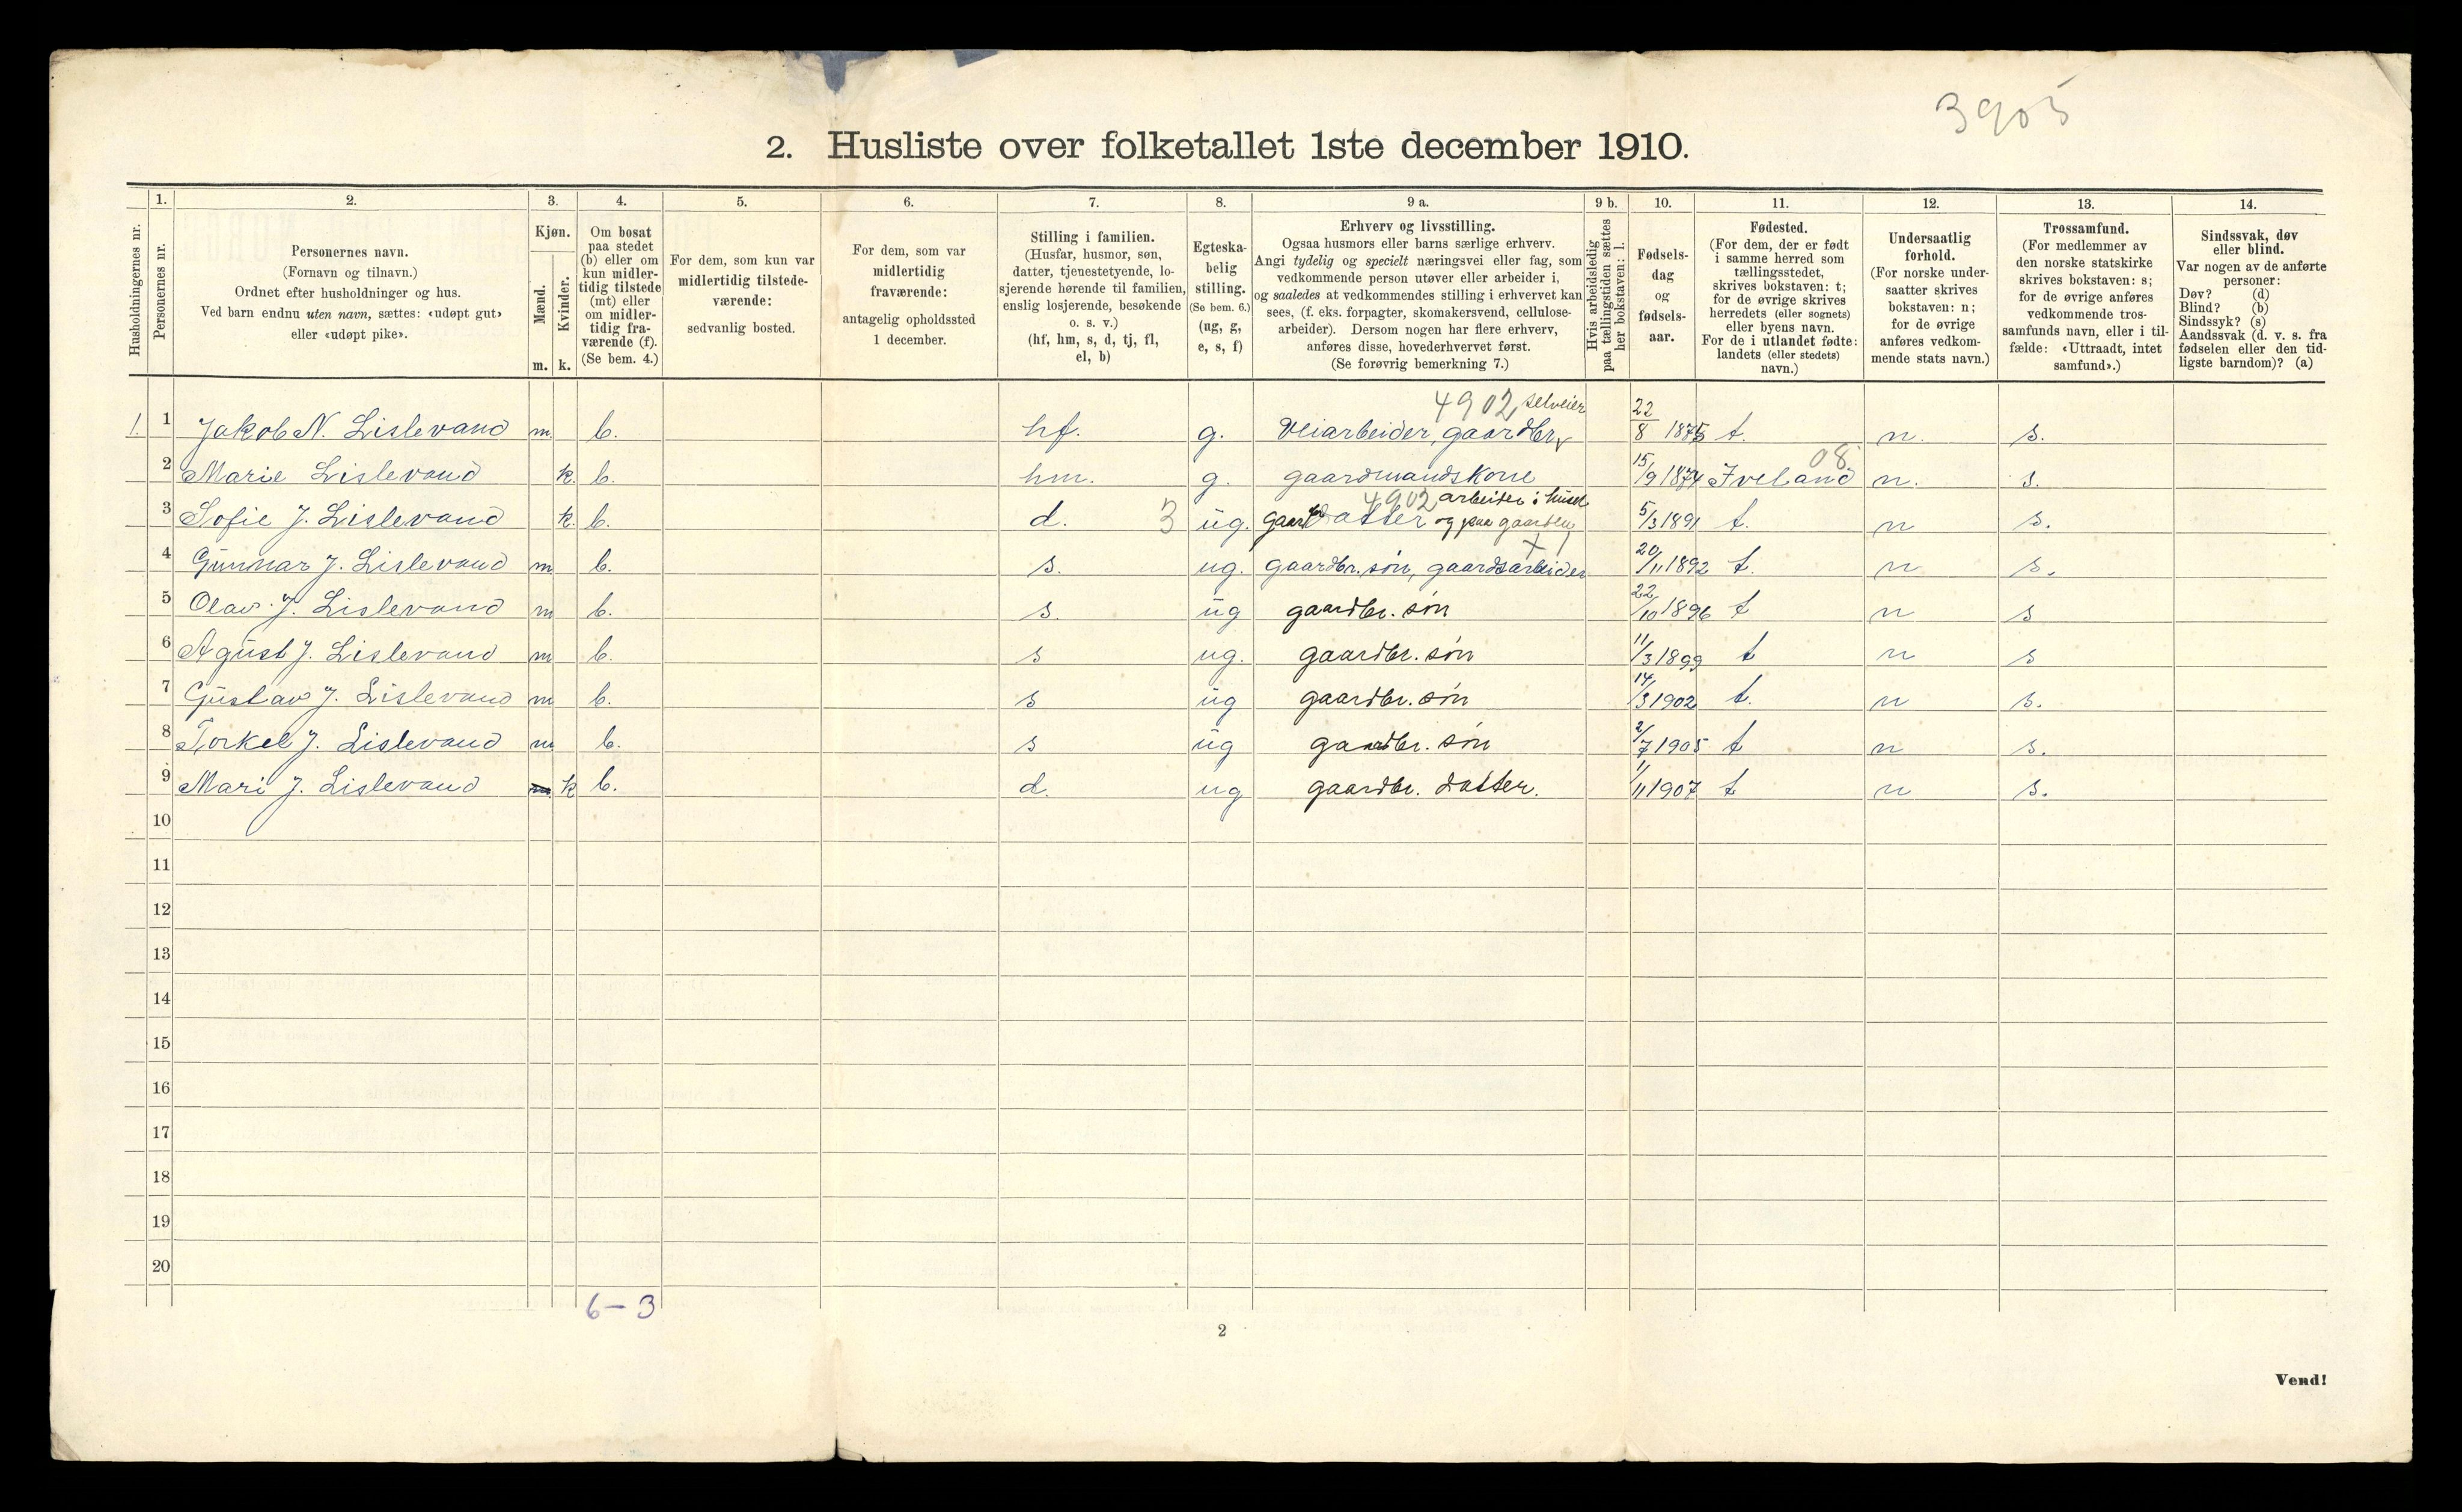 3905
2. Husliste over folketallet 1ste december 1910.
Husholdningernes nr.
1.
Personernes nr.
2.
Personernes navn.
(Fornavn og tilnavn.)
Ordnet efter husholdninger og hus.
Ved barn endnu uten navn, sættes: «udøpt gut»
eller «udøpt pike».
3.
Kjøn.
Mænd.
Kvinder.
m. k.
4.
Om bosat
paa stedet
(b) eller om
kun midler-
tidig tilstede
(mt) eller
om midler-
tidig fra-
værende (f).
(Se bem. 4.)
5.
For dem, som kun var
midlertidig tilstede-
værende:
sedvanlig bosted.
6.
For dem, som var
midlertidig
fraværende:
antagelig opholdssted
1 december.
7.
Stilling i familien.
(Husfar, husmor, søn,
datter, tjenestetyende, lo-
sjerende hørende til familien,
enslig losjerende, besøkende
o. s. v.)
(hf, hm, s, d, tj, fl,
el, b)
8.
Egteska-
belig
stilling.
(Se bem. 6.)
(ug, g,
e, s, f)
9 a.
Erhverv og livsstilling.
Ogsaa husmors eller barns særlige erhverv.
Angi tydelig og specielt næringsvei eller fag, som
vedkommende person utøver eller arbeider i,
og saaledes at vedkommendes stilling i erhvervet kan
sees, (f. eks. forpagter, skomakersvend, cellulose-
arbeider). Dersom nogen har flere erhverv,
anføres disse, hovederhvervet først.
(Se forøvrig bemerkning 7.)
9 b.
Hvis arbeidsledig
paa tællingstiden sættes
her bokstaven: l.
10.
Fødsels-
dag
og
fødsels-
aar.
11.
Fødested.
(For dem, der er født
i samme herred som
tællingsstedet,
skrives bokstaven: t;
for de øvrige skrives
herredets (eller sognets)
eller byens navn.
For de i utlandet fødte:
landets (eller stedets)
navn.)
12.
Undersaatlig
forhold.
(For norske under-
saatter skrives
bokstaven: n;
for de øvrige
anføres vedkom-
mende stats navn.)
13.
Trossamfund.
(For medlemmer av
den norske statskirke
skrives bokstaven: s;
for de øvrige anføres
vedkommende tros-
samfunds navn, eller i til-
fælde: «Uttraadt, intet
samfund».)
14.
Sindssvak, døv
eller blind.
Var nogen av de anførte
personer:
Døv? (d)
Blind? (b)
Sindssyk? (s)
Aandssvak (d. v. s. fra
fødselen eller den tid-
ligste barndom)? (a)
4902 selveier
1. 1 Jakob N. Lislevand m. b. hf. g. Veiarbeider, gaardbr. 22/8 1875 t. n. s.
08.
2 Marie Lislevand k. b. hm. g. gaardmandskone 15/9 1874 Iveland n. s.
4902 arbeider i huset
3 Sofie J. Lislevand k. b. d. 3 ug. gaardbr datter og paa gaarden 5/3 1891 t. n s.
4 Gunnar J. Lislevand m b. s. ug. gaardbr. søn, gaardsarbeider 20/11 1892 t. n s.
5 Olav. J. Lislevand m b. s. ug gaardbr. søn 22/10 1896 t n s
6 Agust J. Lislevand m b. s ug. gaardbr. søn 11/3 1899 t n s
7 Gustav J. Lislevand m b. s ug gaardbr. søn 14/3 1902 t. n s.
8 Torkel J. Lislevand m. b. s ug gaardbr. søn 2/7 1905 t n s.
9 Mari J. Lislevand m. k b. d. ug gaardbr. datter. 1/11 1907 t n s.
10
11
12
13
14
15
16
17
18
19
20
6 – 3
2
Vend!